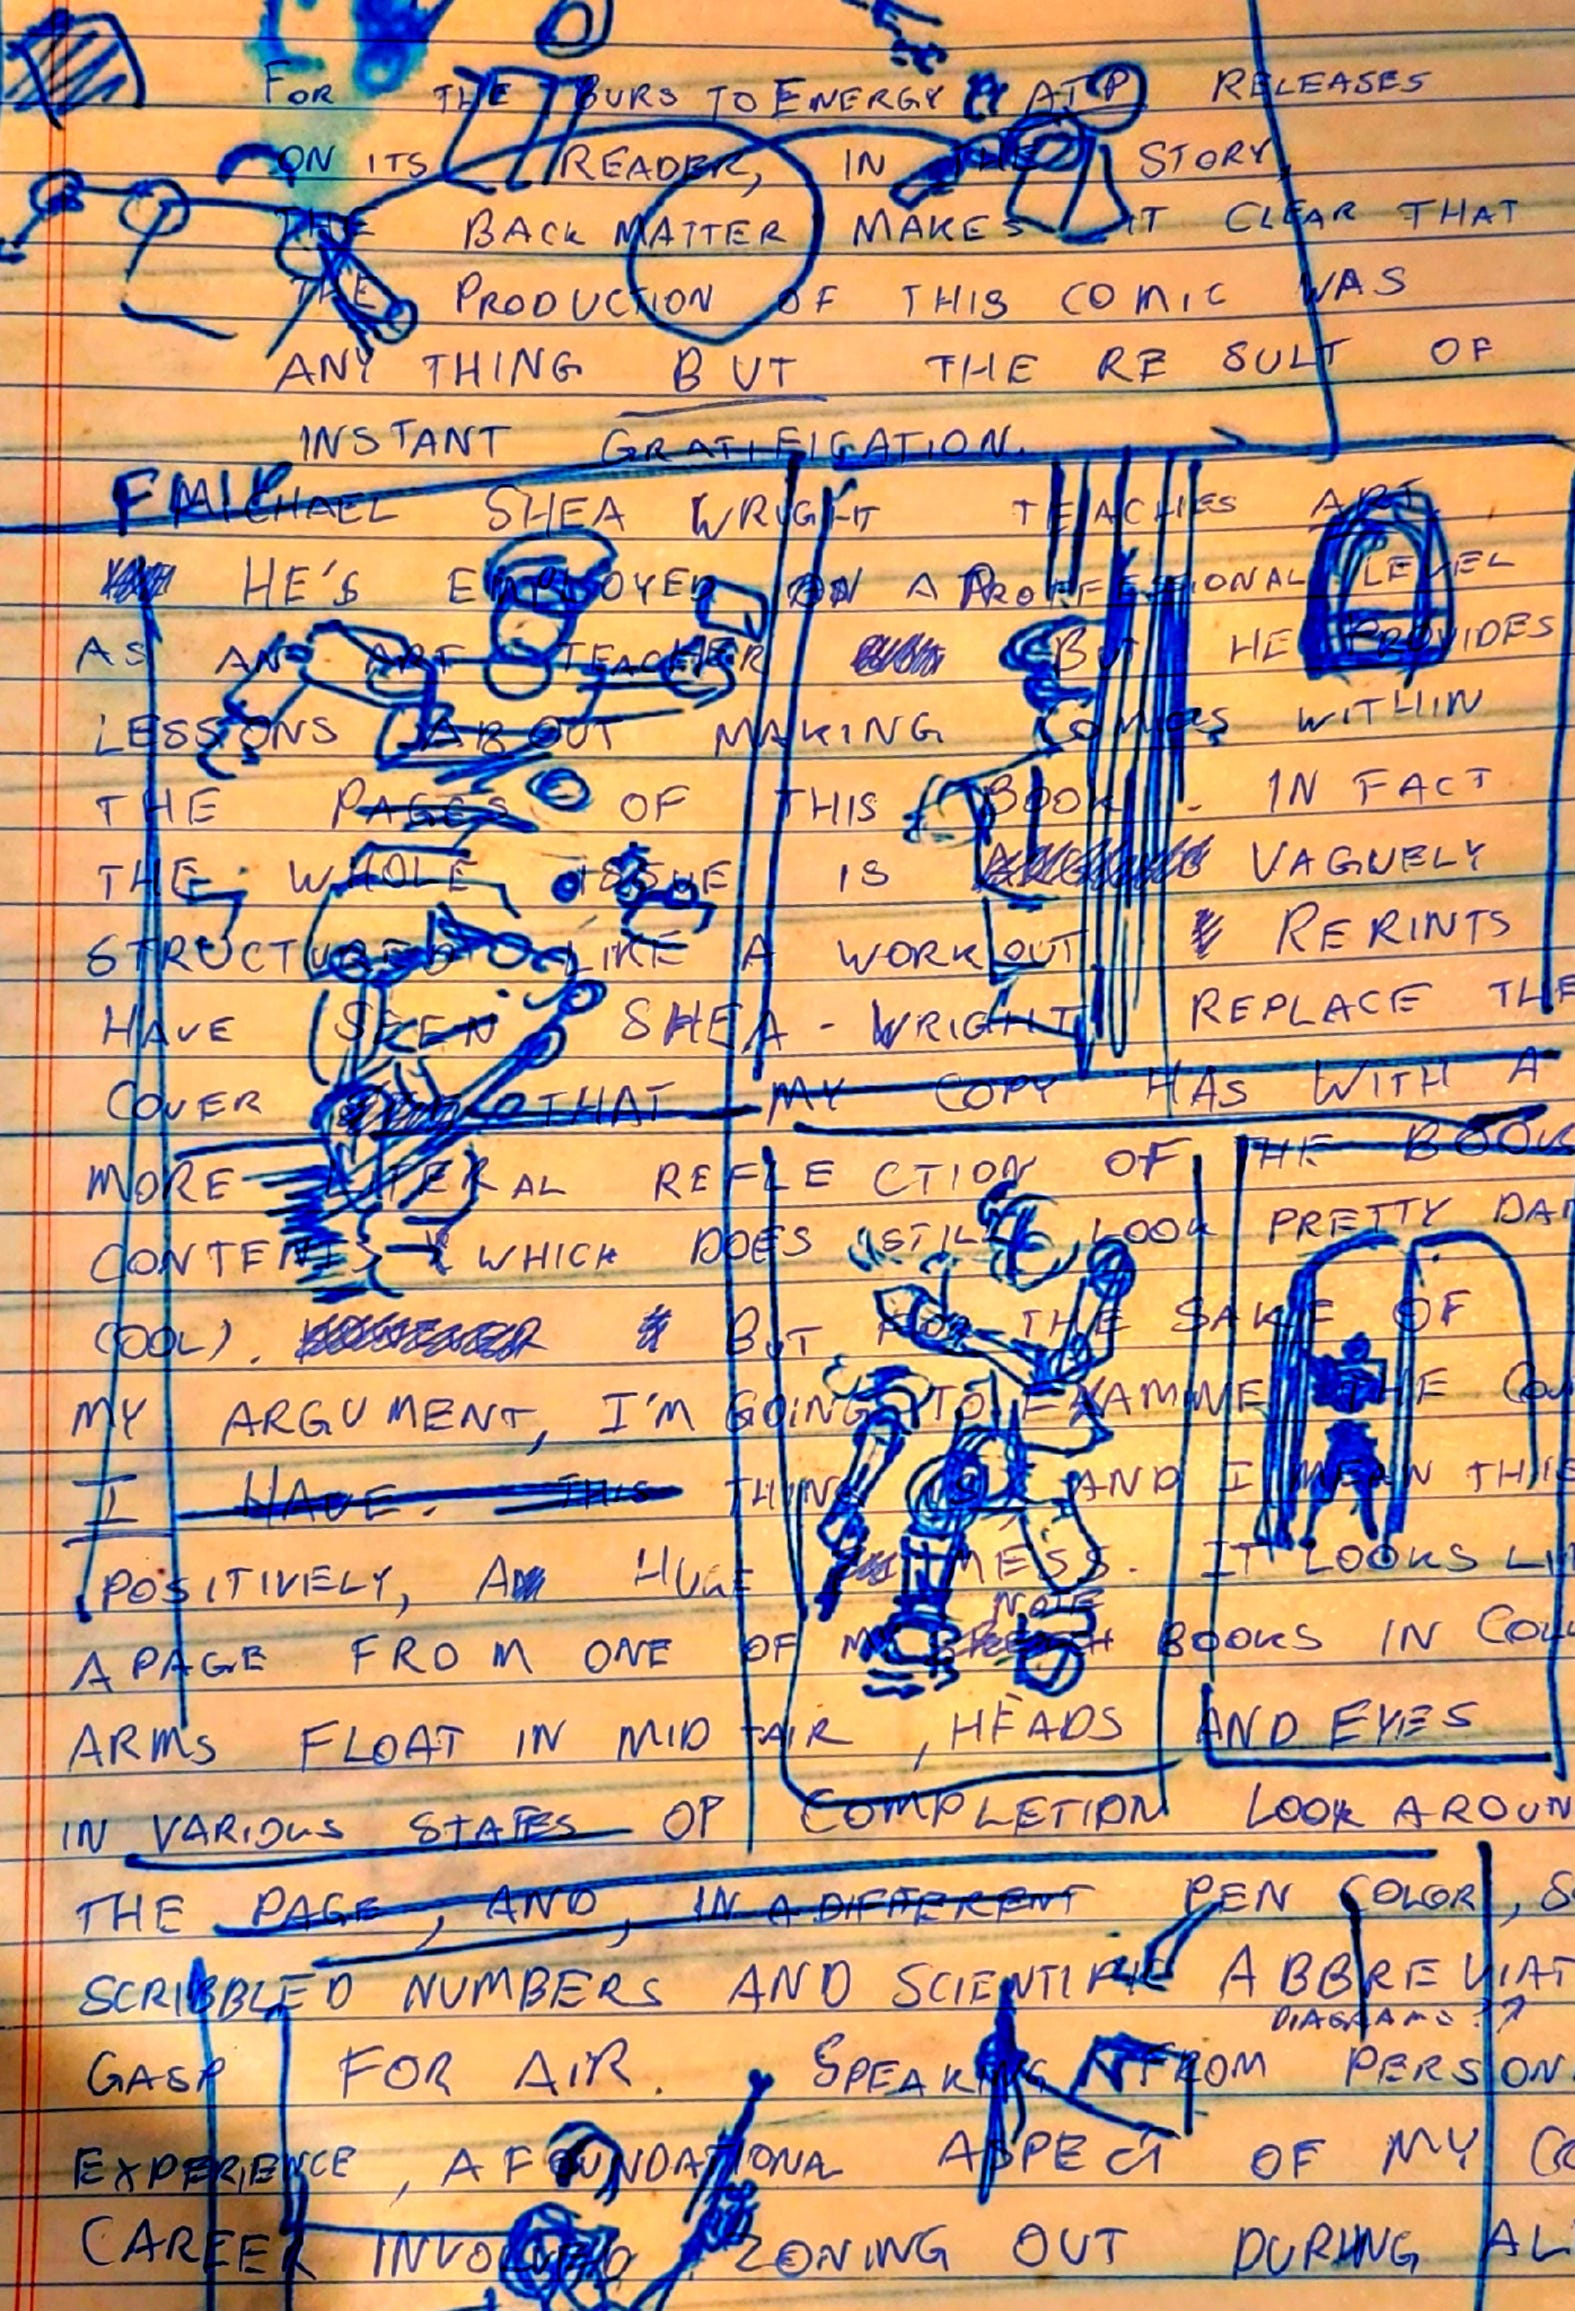 FOR THE BURS TO ENERGY ATP RELEASES
ON ITS READER, IN THE STORY,
THE BACK MATTER MAKES IT CLEAR THAT
THE PRODUCTION OF THIS COMIC WAS
ANY THING BUT THE RESULT OF
INSTANT GRATIFICATION.
MICHAEL SHEA WRIGHT TEACHES ART
HE'S EMPLOYED ON A PROFESSIONAL LEVEL
AS AN ART TEACHER BUT HE PROVIDES
LESSONS ABOUT MAKING COMICS WITHIN
THE PAGES OF THIS BOOK. IN FACT
THE WHOLE ISSUE IS VAGUELY
STRUCTURED LIKE A WORKOUT RERINTS
HAVE SEEN SHEA-WRIGHT REPLACE THE
COVER THAT MY COPY HAS WITH A
MORE LITERAL REFLECTION OF THE BOOKS
CONTENTS (WHICH DOES STILL LOOK PRETTY DA
COOL). BUT FOR THE SAKE OF
MY ARGUMENT, I'M GOING TO EXAMINE THE CO
I HAVE. THIS THING IS, AND I MEAN THIS
POSITIVELY, A HUGE MESS. IT LOOKS LI
NOTE
A PAGE FROM ONE OF MY BOOKS IN COLL
ARMS FLOAT IN MID AIR, HEADS AND EYES
IN VARIOUS STATES OF COMPLETION LOOK AROUN
THE PAGE, AND, IN A DIFFERENT PEN COLOR, S
SCRIBBLED NUMBERS AND SCIENTIFIC ABBREVIAT
DIAGRAMS?
GASP FOR AIR. SPEAKING FROM PERSON
EXPERIENCE, A FOUNDATIONAL ASPECT OF MY
CAREER INVOLVED ZONING OUT DURING AL